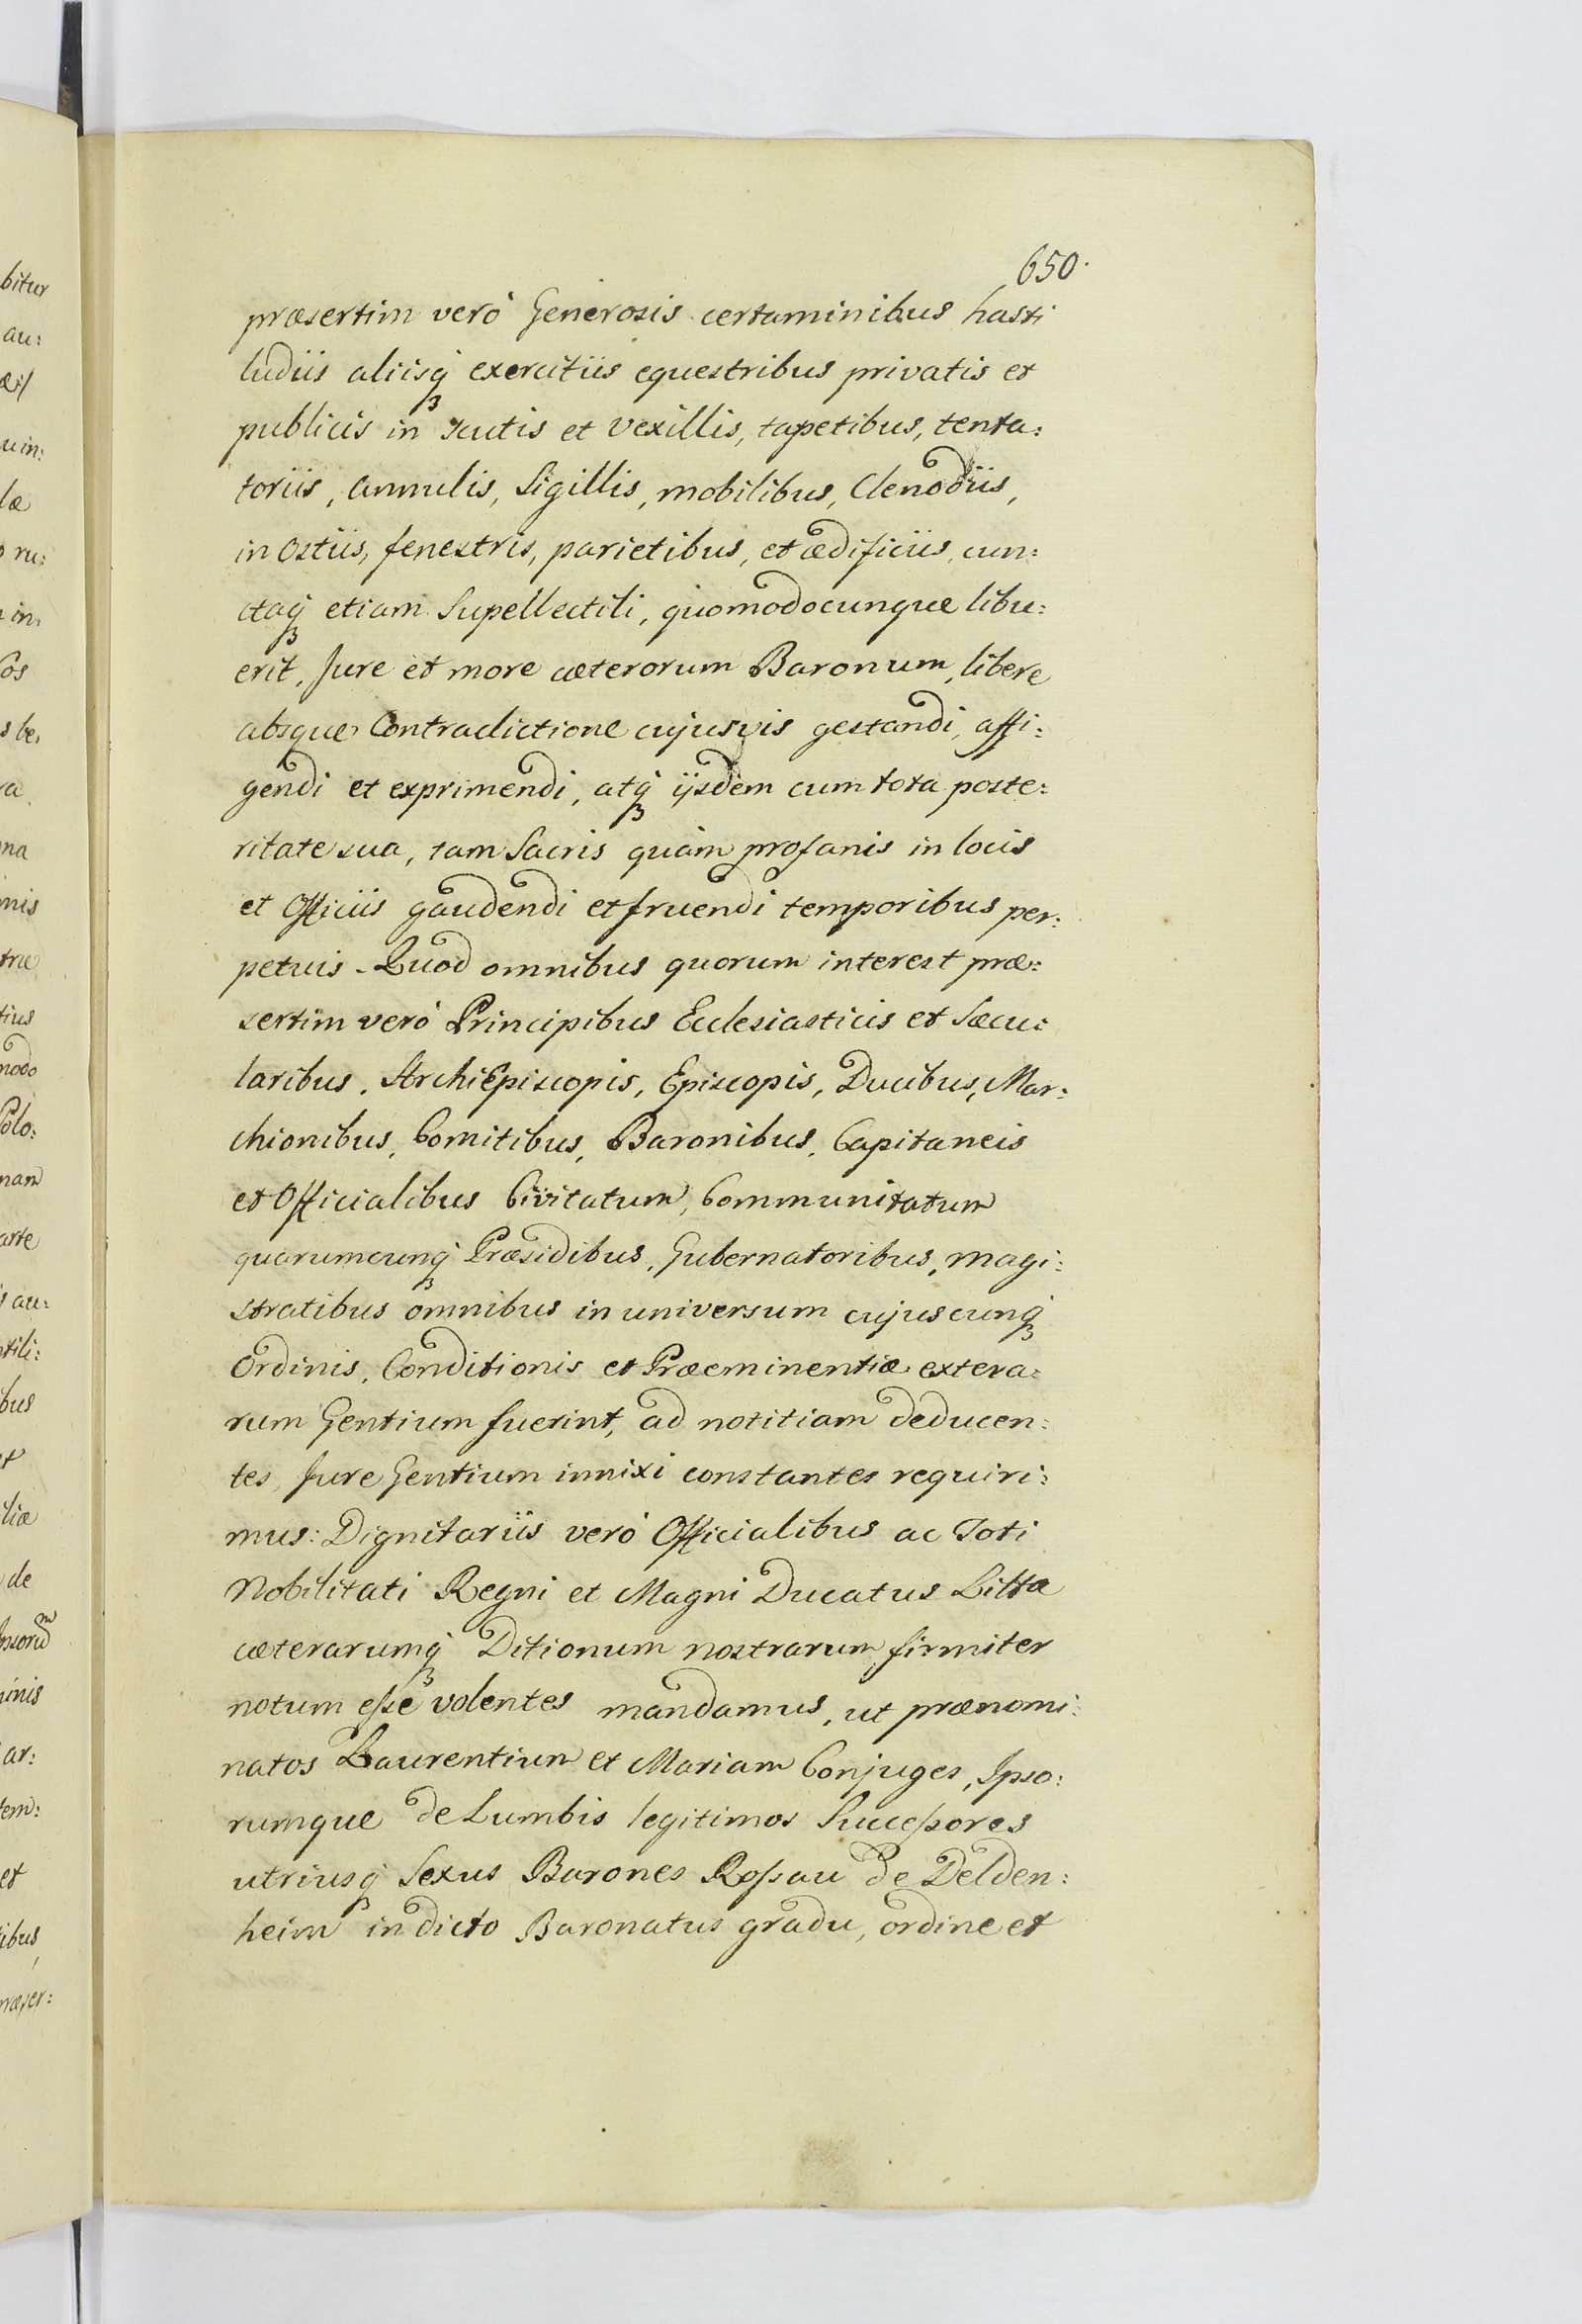 650.
præsertim verò Generosis certaminibus hasti
ludiis aliisqꝫ exercitiis equestribus privatis et
publicis in scutis et vexillis, tapetibus, tenta:
toriis, annulis, Sigillis, mobilibus, Clenodiis,
in Ostiis, fenestris, parietibus, et ædificiis, cun:
ctaqꝫ etiam Supellectili, quomodocunque libu:
erit, Jure et more cæterorum Baronum, libere
absque Contradictione cujusvis gestandi, affi:
gendi et exprimendi, atqꝫ ijsdem cum tota poste:
ritate sua, tam Sacris quàm profanis in locis
et Officiis gaudendi et fruendi temporibus per:
petuis. Quod omnibus quorum interest præ:
sertim verò Principibus Ecclesiasticis et Sæcu:
laribus, ArchiEpiscopis, Episcopis, Ducibus, Mar:
chionibus, Comitibus, Baronibus, Capitaneis
et Officialibus Civitatum, Communitatum
quarumcunqꝫ Præsidibus, Gubernatoribus, magi:
stratibus omnibus in universum cujuscunqꝫ
Ordinis, Conditionis et Præeminentiæ extera:
rum Gentium fuerint, ad notitiam deducen:
tes, Jure Gentium innixi constantes requiri:
mus: Dignitariis verò Officialibus ac Toti
Nobilitati Regni et Magni Ducatus Litta
cæterarumqꝫ Ditionum nostrarum firmiter
notum eſse volentes mandamus, ut prænomi:
natos Laurentium et Mariam Conjuges, Ipso:
rumque de Lumbis legitimos Succeſsores
utriusqꝫ Sexus Barones Roſsau de Delden:
heim in dicto Baronatus gradu, ordine et
bitur
au:
uin:
læ
ru:
in
os
be,
ra
na
nis
træ
tius
modo
Polo:
nam
arte
au:
ntili:
bus
et
liæ
de
inis
ar:
tem:
et
ibus,
præser: